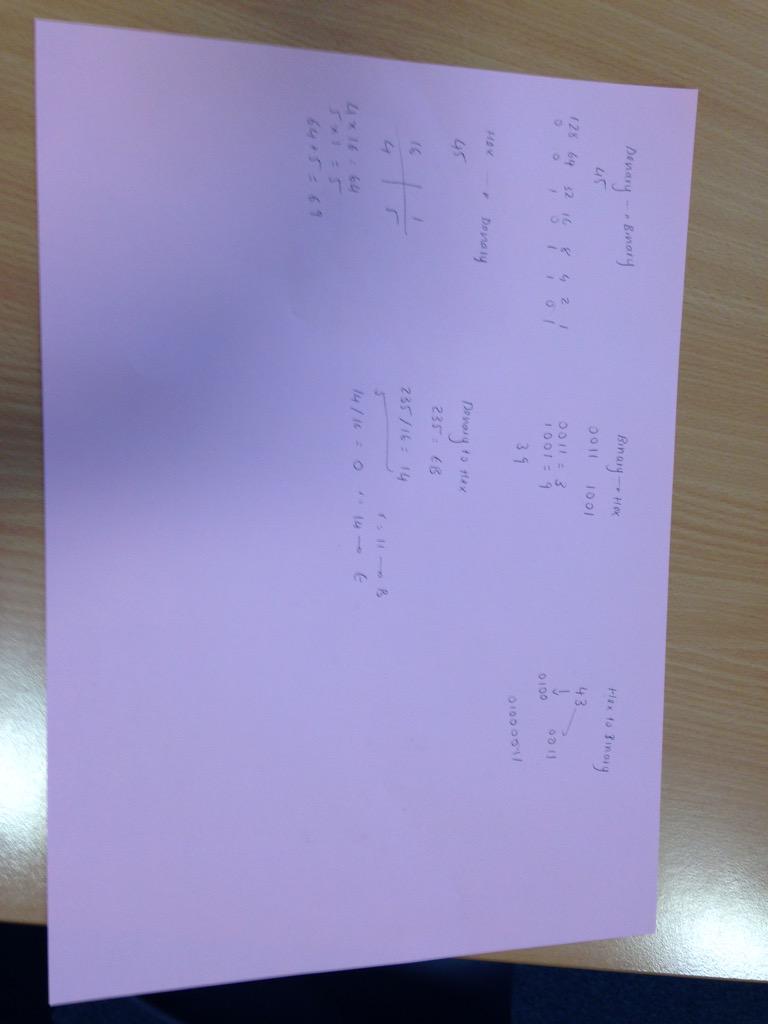 Denary → Binary
45
128 64 32 16 8 4 2 1
0 0 1 0 1 1 0 1
Hex → Denary
45
16 1
4 5
4 x 16 = 64
5 x 1 = 5
64 + 5 = 69
Binary → Hex
0011 1001
0011 = 3
1001 = 9
39
Denary to Hex
235 =
235/16 = 14
r = 11 → B
14/16 = 0 r = 14 → E
Hex to Binary
43
0100 0011
01000011